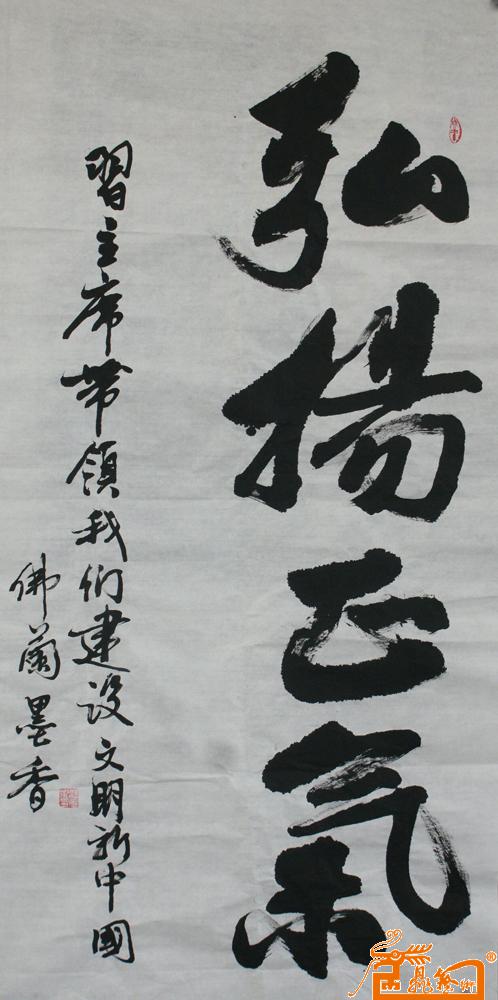 弘揚正氣
習主席带領我们建设文明新中國
佛蘭墨香